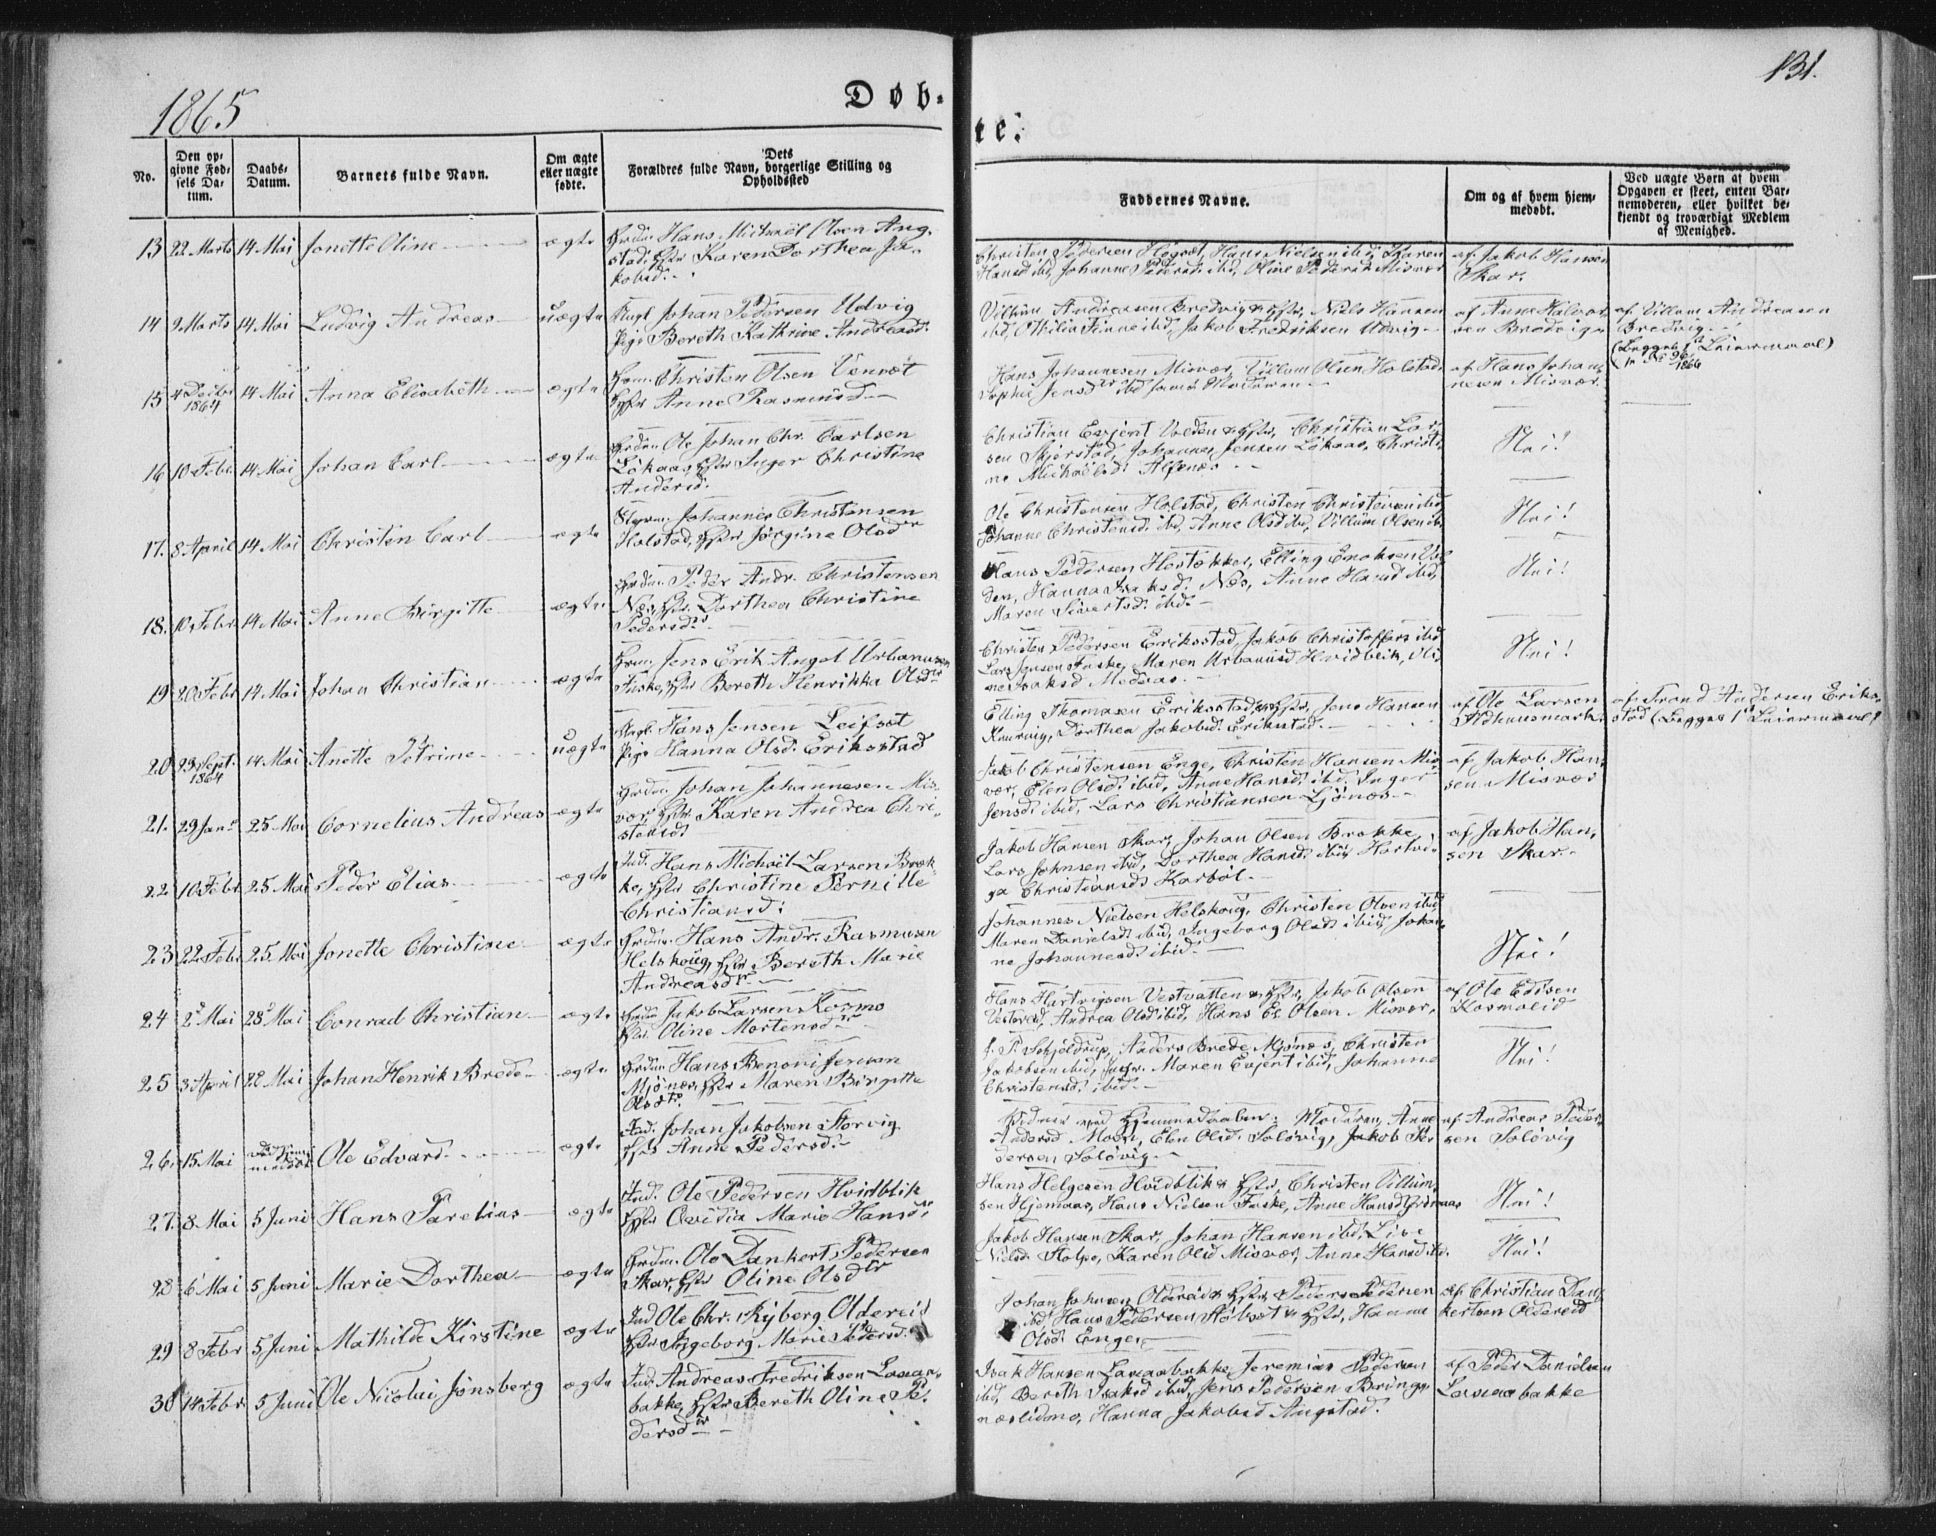 1865
Døb-
te.
131.
No.
Den op-
givne Fød-
sels Da-
tum.
Daabs-
Datum.
Barnets fulde Navn.
Om ægte
eller uægte
fødte.
Dets
Forældres fulde Navn, borgerlige Stilling og
Opholdssted
Faddernes Navne.
Om og af hvem hjem-
medøbt.
Ved uægte Børn af hvem
Opgaven er skeet, enten Bar-
nemoderen, eller hvilket be-
kjendt og troværdigt Medlem
af Menighed.
13 22 Marts 14 Mai Jonette Oline ægte
Hans Michael Olsen Ang-
stad, Karen Dorthea Ja-
kobsd.
Christen Pedersen Hans Nielsen ibid, Karen
Hansd ibd, Johanne Pedersd ibd, Oline Pedersd Misvær
af Jakob Hansen
Skar.
14 9 Marts 14 Mai Ludvig Andreas uægte
Ungk Johan Pedersen Udvig
Pige Bereth Kathrine Andreasd.
Villum Andreasen Bredvig & Hstr, Niels Hansen
ibd, Othilia Finne ibd, Jakob Fredriksen Udvig
af Anne Halvor-
sen Bredvig
af Villum Andreasen
Bredvig
(Begges 1ste Leiermaal)
1866
15 4 Decbr
1864 14 Mai Anna Elisabeth ægte
Christen Olsen Venset
Hstr Anne Rasmusd
Hans Johannesen Misvær, Villum Olsen Holstad
Sophie Jensdtr ibd samt Moderen
af Hans Johan-
nesen Misvær
16 10 Febr 14 Mai Johan Carl ægte
Ole Johan Chr. Carlsen
Løkaas, Hstr Inger Christine
Andersd.
Christian Evjent Valden & Hstr, Christian Lar-
sen Skjørstad, Johannes Jensen Løkaas, Christi-
ne Michaelsd. Alfenæs
Nei!
17. 8 April 14 Mai Christen Carl ægte
Johannes Christensen
Holstad, Hstr Jørgine Olsdtr
Ole Christensen Holstad, Christen Christensen ibd,
Johanne Christensd. ibd, Anne Olsd ibd, Villum Olsen ib.
Nei!
18. 10 Febr 14 Mai Anne Birgitte ægte
Peder Andr. Christensen
Næs, Hstr. Dorthea Christine
Pedersd
Hans Pedersen Hestøkker, Elling Enoksen Val-
den, Hanna Isaksd. Næs, Anne Hansd ibid,
Maren Sivertsd. ibd.
Nei!
19 20 Febr 14 Mai Johan Christian ægte
Jens Erik Angel Urbanusen
Fuske, Hstr Bereth Henrikka Olsdtr
Christen Pedersen Eriksstad, Jakob Christoffers ibd
Lars Jensen Fuske, Maren Urbanusd Hvidblik, Oli-
ne Isaksd Medaas.
Nei!
20 23 Sept.
1864 14 Mai Anette Petrine uægte
Hans Jensen Leifset
Pige Hanna Olsd. Eriksstad
Elling Thomasen Eriksstad & Hstr, Jens Hansen
Kaurvig, Dorthea Jakobsd. Eriksstad.
af Ole Larsen
Oldhuusmark
af Trond Andersen Eriks-
stad (Begges 1ste Leiermaal)
21. 29 Janr 25 Mai Cornelius Andreas ægte
Johan Johannesen Mis-
vær Hstr Karen Andrea Chri-
stensd.
Jakob Christensen Enge, Christen Hansen Mis-
vær, Elen Olsd. ibid, Anne Hansd ibd. Inger
Jensd. ibid, Lars Christiansen Ljønes
af Jakob Han-
sen Misvær
22 10 Febr 25 Mai Peder Elias ægte
Ind. Hans Michael Larsen Bræk-
ke, Hstr Christine Pernille
Christiansd.
Jakob Hansen Skar, Johan Olsen Brække,
Lars Johnsen ibid, Dorthea Hansd. ibid, Hartvi-
ga Christiansd Karbøl.
af Jakob Han-
sen Skar.
23 22 Febr 25 Mai Jonette Christine ægte
Hans Andr. Rasmusen
Helskoug, Hstr Bereth Marie
Andreasdtr
Johannes Nielsen Helskoug, Christen Olsen ibid
Maren Danielsd. ibid, Ingeborg Olsd ibid, Johan-
ne Johannesd. ibid.
Nei!
24 2 Mai 28 Mai Conrad Christian ægte
Jakob Larsen Kosmo
Hstr. Oline Mortensdtr
Hans Hartvigsen Vestvatten & Hstr, Jakob Olsen
Andrea Olsd ibid, Hans Er. Olsen Misvær.
af Ole Edisen
Kosmolid
25 3 April 28 Mai Johan Henrik Brede ægte
Hans Benoni Jensen
Mjønæs, Hstr Maren Birgitte
Olsdtr.
J. P. Schjeldrup, Anders Brede Mjønæs, Christen
Jakobsen ibid, Maren Evjert ibid, Johanne
Christensd. ibid.
Nei!
26. 15 Mai Ole Edvard ægte
Ind. Johan Jakobsen Storvig
Hstr Anne Pedersd.
Vidner ved Hjemmedaaben: Moderen, Anne
Andersd Moen, Elen Olsd. Soløvig, Jakob Pe-
dersen Soløvig
af Andreas Peder-
sen Soløvig
27. 8 Mai 5 Juni Hans Parelius ægte
Ind. Ole Pedersen Hvidblik
Hstr Ovidia Marie Hansd.
Hans Helgesen Hvidblik & Hstr, Christen Villum-
sen Hjemaas, Hans Nielsen Fuske, Anne Hansd
Nei!
28 6 Mai 5 Juni Marie Dorthea ægte
Ole Dankert Pedersen
Skar, Hstr Oline Olsdtr
Jakob Hansen Skar, Johan Hansen ibid, Live
Nielsd. Stolpe, Karen Olsd Misvær, Anne Hansd ibd.
Nei!
29 8 Febr 5 Juni Mathilde Kirstine ægte
Ind Ole Chr. Nyberg Oldereid
Hstr Ingeborg Marie Pedersd.
Johan Johnsen Oldereid & Hstr, Peder Pedersen
ibid, Hans Pedersen & Hstr, Hanna
Olsd. Enge,
af Christian Dan-
kertsen Oldereid
30 14 Febr 5 Juni Ole Nicolai Jønsberg ægte
Ind. Andreas Fredriksen Laxaa-
bakke, Hstr Bereth Oline Pe-
dersdtr
Isak Hansen Laxaabakke, Jeremias Pedersen
ibid, Bereth Isaksd ibid, Jens Pedersen Brings-
næslidmo, Hanna Jakobsd Angstad.
af Peder Danielsen
Laxaabakke